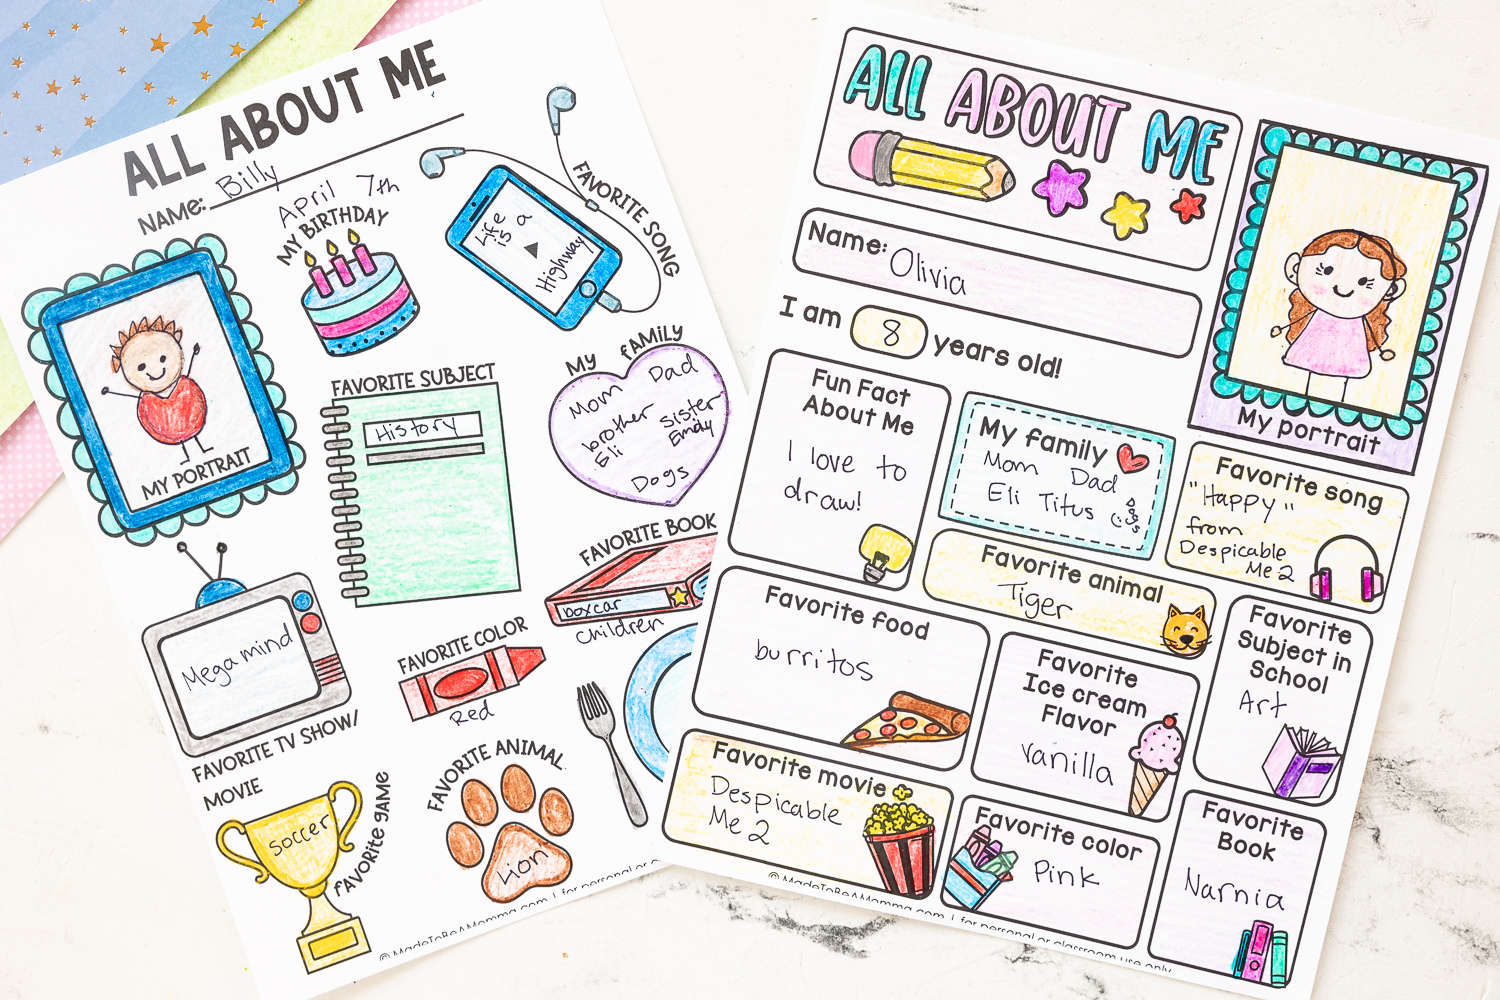 ALL ABOUT ME
NAME: Billy
April 7th
MY BIRTHDAY
FAVORITE SONG
Life
is a
Highway
MY PORTRAIT
FAVORITE SUBJECT
History
MY FAMILY
Mom Dad
brother Sister
Eli Emily
Dogs
FAVORITE BOOK
boxcar
children
Megamind
FAVORITE TV SHOW/
MOVIE
FAVORITE COLOR
Red
soccer
FAVORITE GAME
FAVORITE ANIMAL
Lion
© MadeToBeAMomma.com | for personal or
ALL ABOUT ME
Name: Olivia
I am 8 years old!
My portrait
Fun Fact
About Me
I love to
draw!
My family
Mom Dad
Eli Titus
Dogs
Favorite song
"Happy"
from
Despicable
Me 2
Favorite animal
Tiger
Favorite food
burritos
Favorite
Ice cream
Flavor
vanilla
Favorite
Subject in
School
Art
Favorite movie
Despicable
Me 2
Favorite color
Pink
Favorite
Book
Narnia
© MadeToBeAMomma.com | for personal or classroom use only